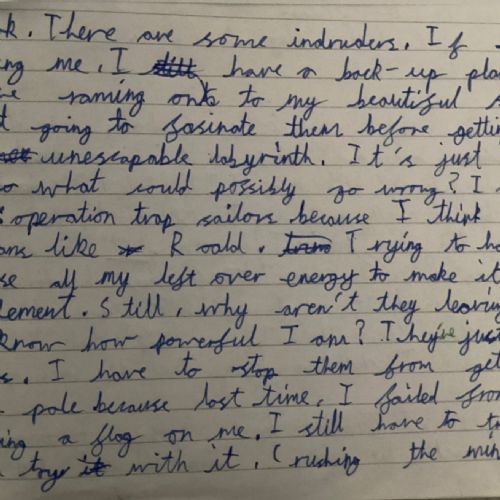 k. There are some indruders. If
ng me. I have a back-up pla
e raming onto to my beautiful s
t going to fasinate them before getti
unescapable labyrinth. It's just
o what could possibly go wrong? I
operation trap sailors because I think
ans like Roald. Trying to ha
se all my left over energy to make it
lement. Still, why aren't they leaving
know how powerful I am? They've just
s. I have to stop them from get
pole because last time, I failed from
ing a flag on me. I still have to tr
toys with it. Crushing the min